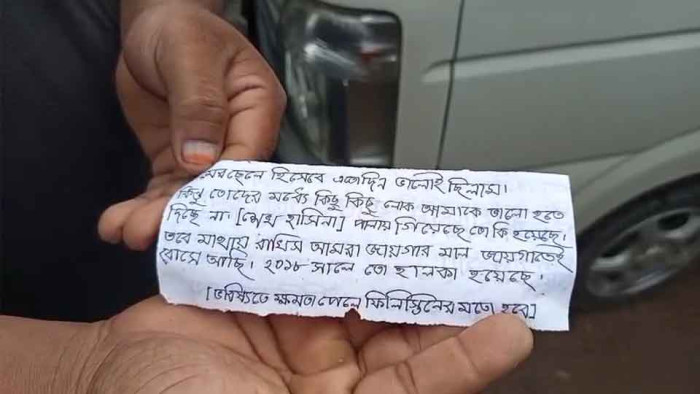 মেরছেলে হিসেবে এতোদিন ভালোই ছিলাম।
কিন্তু তোদের মধ্যে কিছু কিছু লোক আমাকে ভালো হতে
দিচ্ছে না। [শেখ হাসিনা] পালায় গিয়েছে তো কি হয়েছে,
তবে মাথায় রাখিস আমরা জায়গার মাল জায়গাতেই
বোসে আছি। ২০১৮ সালে তো হালকা হয়েছে।
[ভবিষ্যিতে ক্ষমতা পেলে ফিলিস্তিনের মতো হবে]